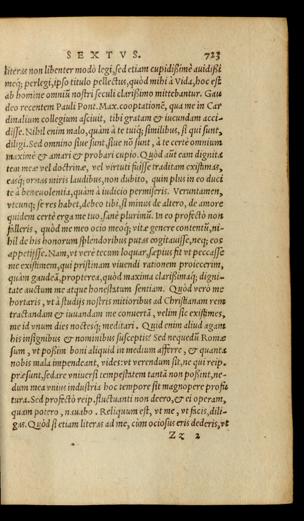 SEXTVS. 723
literas non libenter modò legi, sed etiam cupidißimè auidißi
meq; perlegi, ipso titulo pellectus, quòd mihi à Vida, hoc est
ab homine omniũ nostri seculi clarißimo mittebantur. Gau
deo recentem Pauli Pont. Max. cooptationẽ, qua me in Car
dinalium collegium asciuit, tibi gratam & iucundam acci-
disse. Nihil enim malo, quàm à te tuiq; similibus, si qui sunt,
diligi. Sed omnino siue sunt, siue nõ sunt, à te certè omnium
maximè & amari & probari cupio. Quòd aũt eam dignita
tem meæ vel doctrinæ, vel virtuti fuisse traditam existimas,
easq; ornas miris laudibus, non dubito, quin plus in eo duci
te à beneuolentia, quàm à iudicio permiseris. Veruntamen,
vtcunq; se res habet, debeo tibi, si minus de altero, de amore
quidem certè erga me tuo, sanè plurimũ. In eo profectò non
falleris, quòd me meo ocio meoq; vitæ genere contentũ, ni-
hil de his honorum splendoribus putas cogitauisse, neq; eos
appetijsse. Nam, vt verè tecum loquar, sæpius fit vt peccasse
me existimem, qui pristinam viuendi rationem proiecerim,
quàm gaudeã, propterea, quòd maxima clarißimaq; digni-
tate auctum me atque honestatum sentiam. Quòd verò me
hortaris, vt à studijs nostris mitioribus ad Christianam rem
tractandam & iuuandam me conuertã, velim sic existimes,
me id vnum dies noctesq; meditari. Quid enim aliud agam
his insignibus & nominibus susceptis? Sed nequedũ Romæ
sum, vt poßim boni aliquid in medium afferre, & quanta
nobis mala impendeant, vides: vt verendum sit, ne qui reip.
præsunt, sedare vniuersi tempestatem tantã non poßint, ne-
dum mea vnius industria hoc tempore sit magnopere profu
tura. Sed profectò reip. fluctuanti non deero, & ei operam,
quam potero, nauabo. Reliquum est, vt me, vt facis, dili-
gas. Quòd si etiam literas ad me, cùm ociosus eris dederis, vt
Zz 2